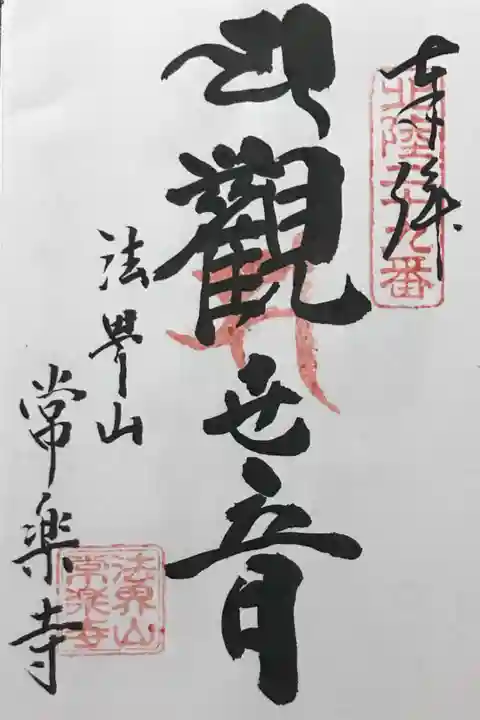 奉拝
北陸三十三番
聖観世音
法界山
常楽寺
法界山
常楽寺